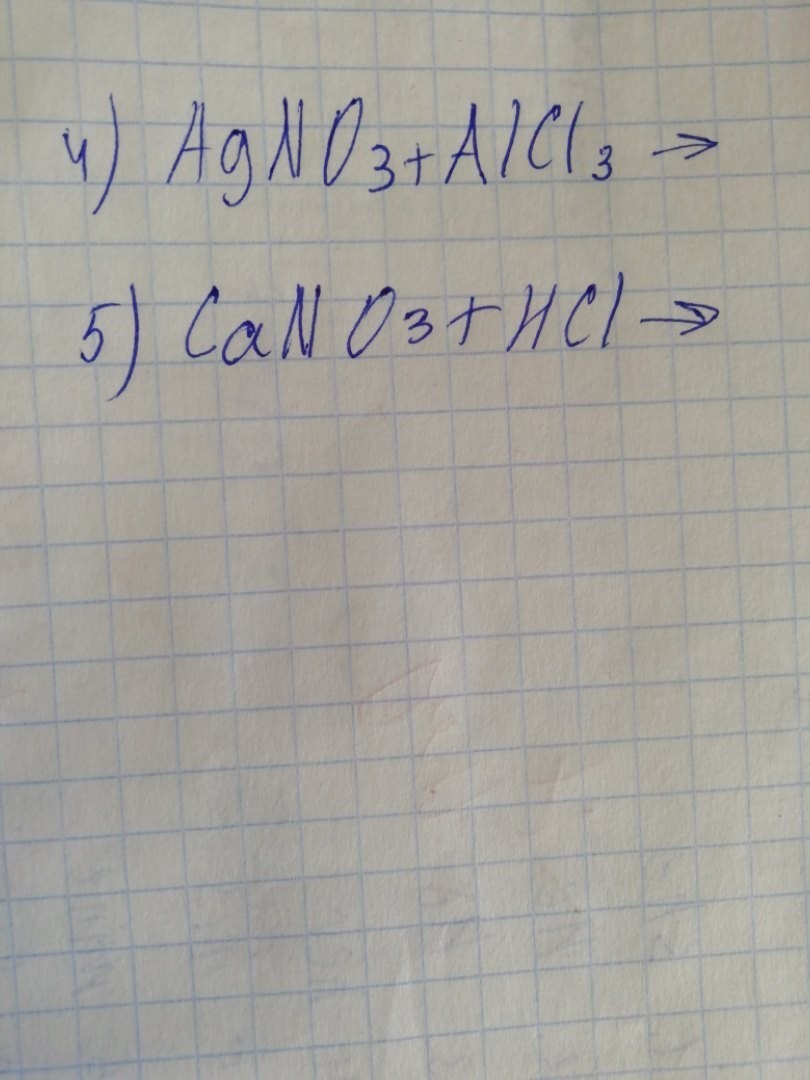 4) AgNO₃+AlCl₃ →
5) CaNO₃+HCl →